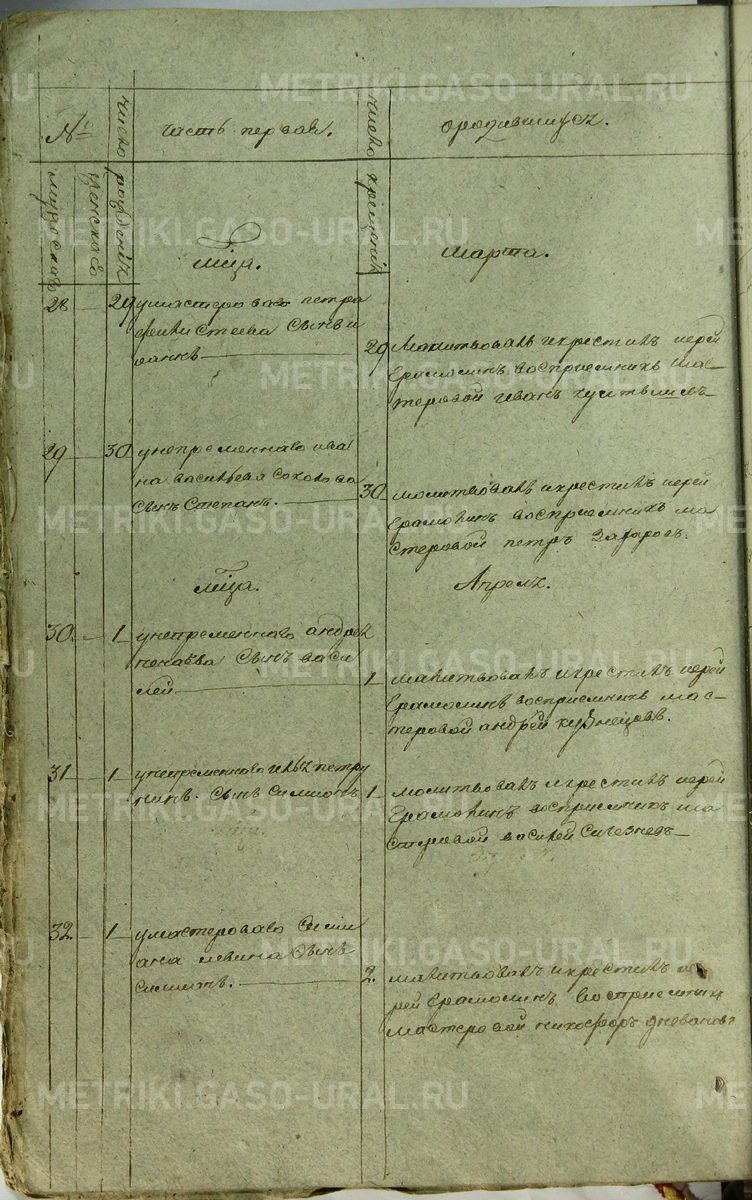 METRIKI.GASO-URAL.RU
№
число рожденiя
часть первая.
число крещенiя
ородившихся.
мужеска
женска
мца.
марта.
28 — 29 умастероваго петра
сынъ и
оаннъ
29 Молитвовалъ икрестилъ иерей
Ермолинъ восприемникъ мас-
теровой иванъ
29 — 30 унепременнаго ива
на васильева соколова
сынъ Степанъ.
30 молитвовалъ икрестилъ иерей
Ермолинъ восприемникъ ма
стеровой петръ захаровъ.
мца.
Апреля.
30. — 1 унепременнаго андрея
сынъ васи
лей
1 молитвовалъ икрестилъ иерей
Ермолинъ восприемникъ мас-
теровой андрей кузнецовъ.
31 — 1 унепременнаго петру
нина. сынъ Симионъ
1 молитвовалъ икрестилъ иерей
Ермолинъ восприемникъ ма
стеровой василей
32 — 1 умастероваго Сими
она левина сынъ
симионъ.
2. молитвовалъ икрестилъ ие
рей Ермолинъ восприемникъ
мастеровой никифоръ